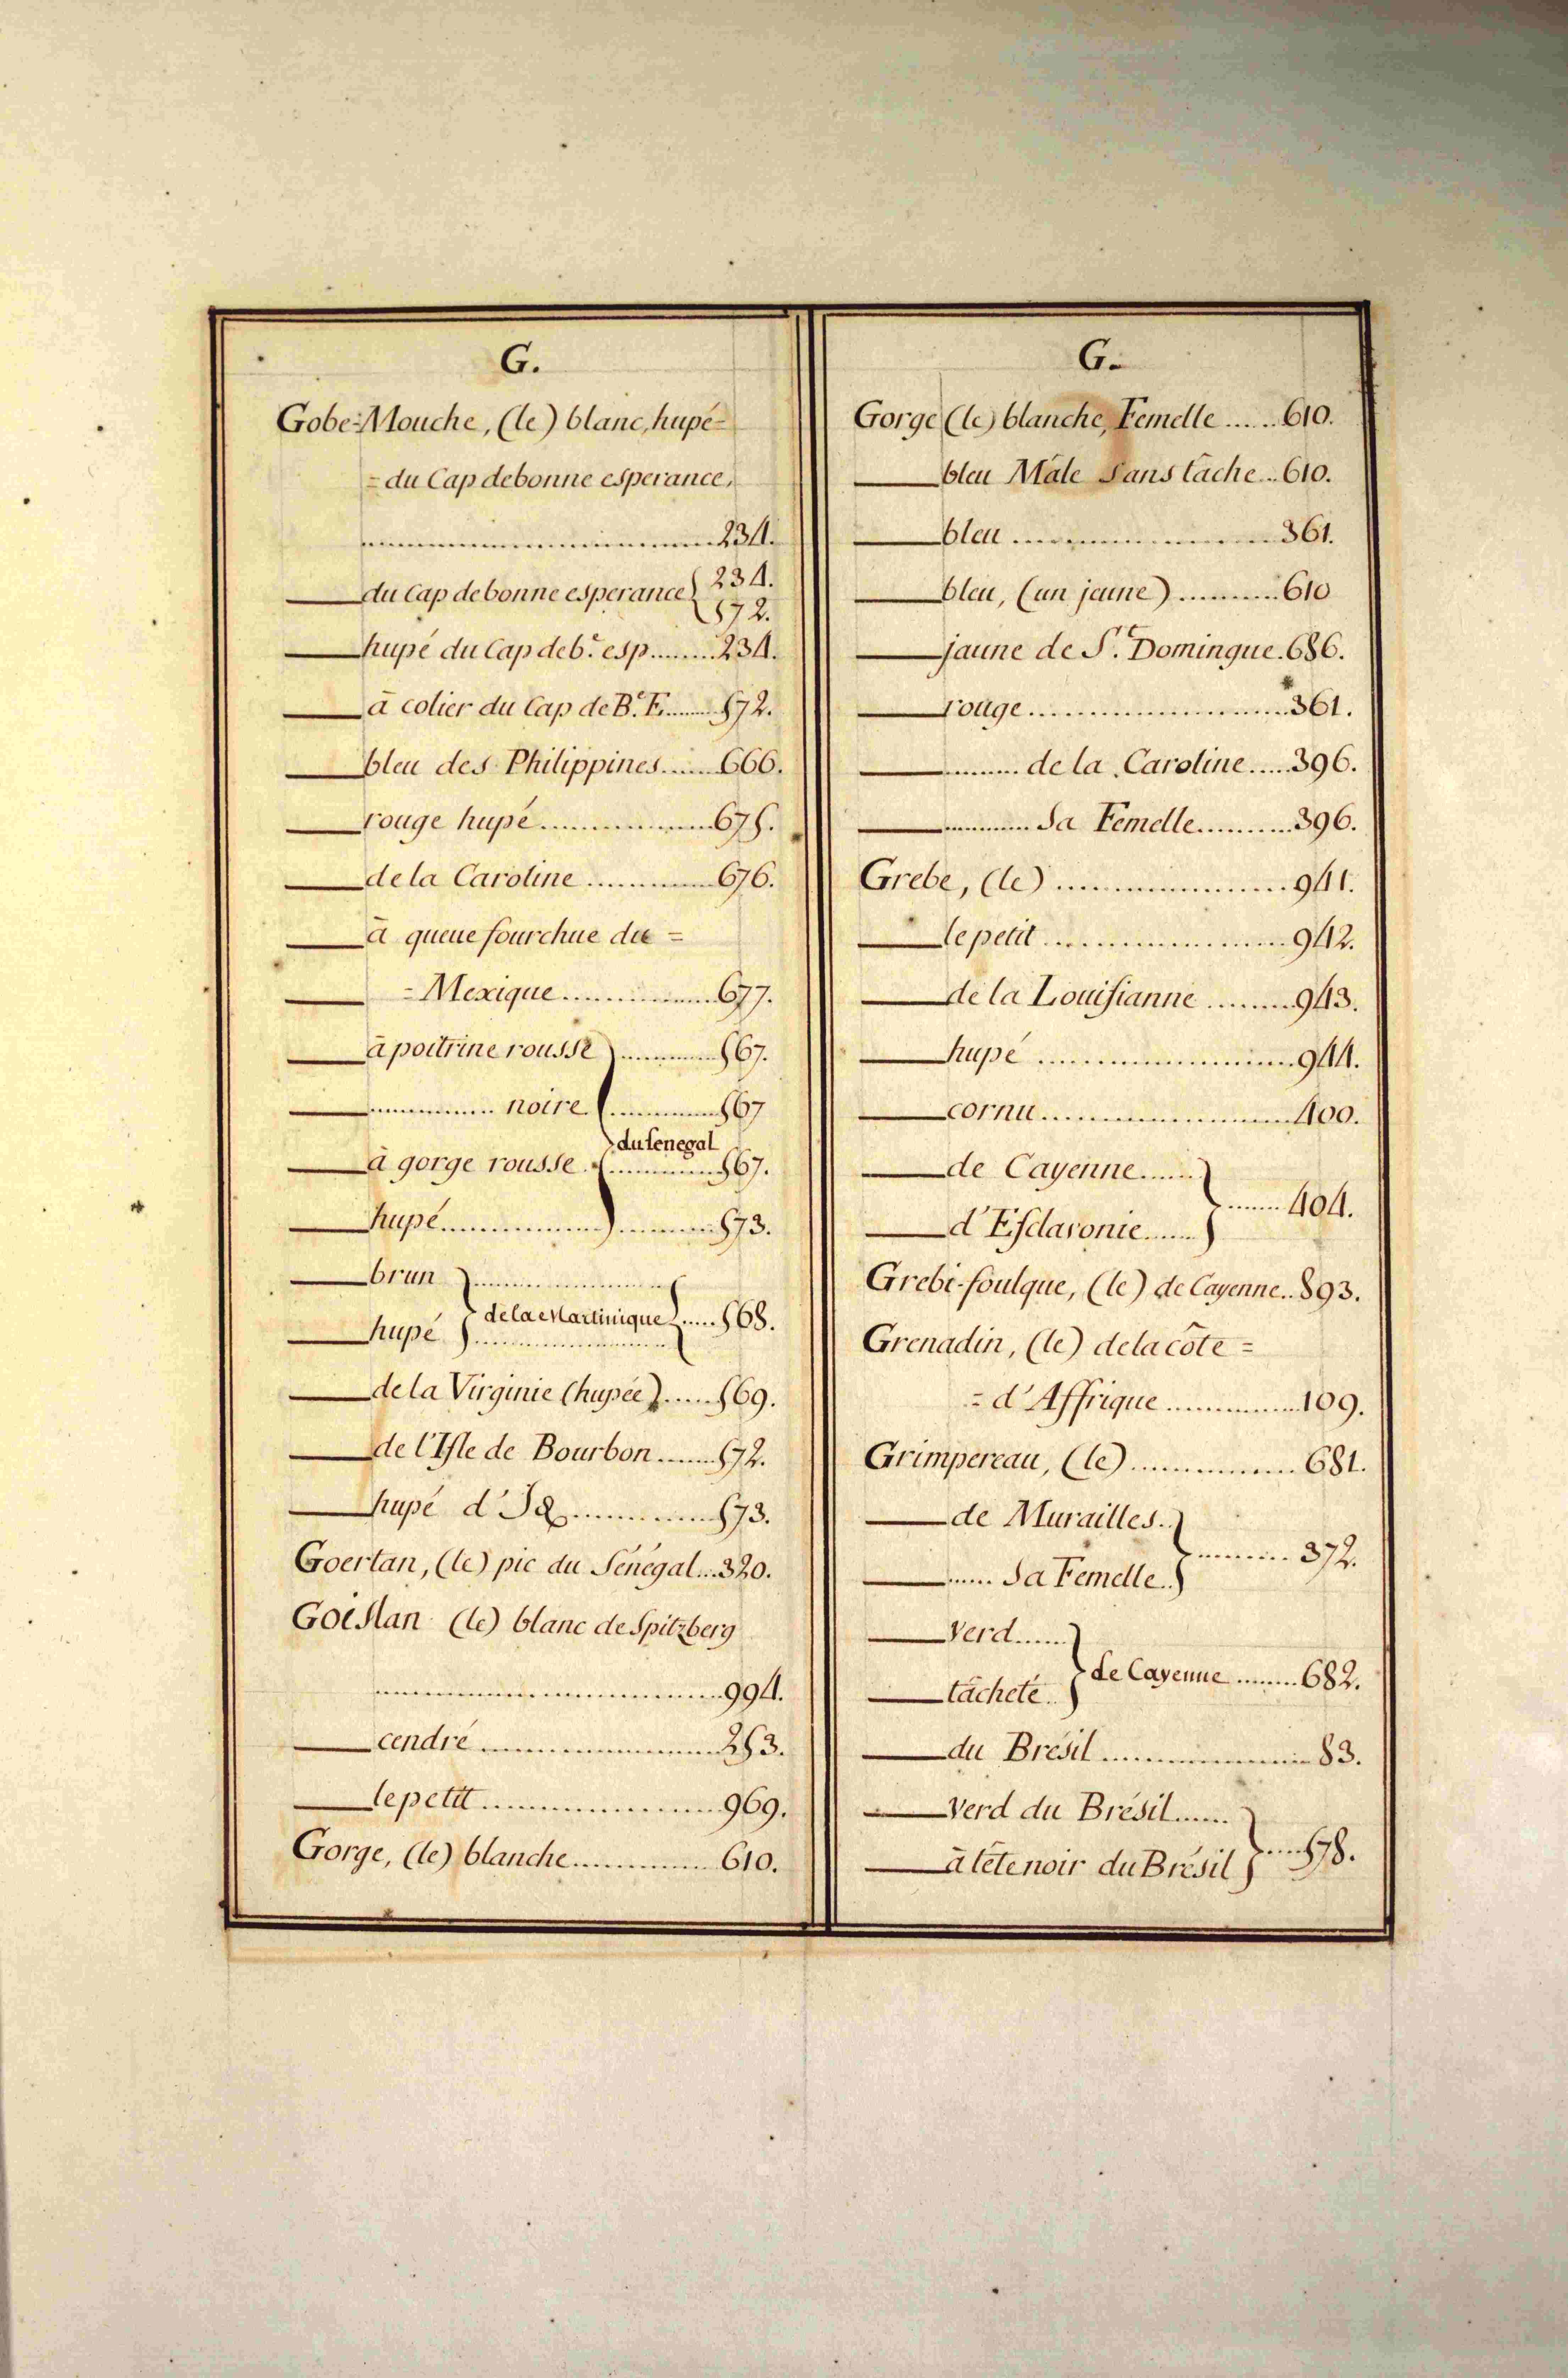 G.
Gobe-Mouche, (le) blanc, hupé=
=du Cap debonne esperance,
........234.
____du Cap debonne esperance { 234.
572.
____hupé du Cap de b.e esp........234.
____à colier du Cap de B.e E........572.
____bleu des Philippines......666.
____rouge hupé........675.
____de la Caroline........676.
____à queue fourchue du =
____=Mexique........677.
____à poitrine rousse ) ........567.
____........ noire ........567
du Senegal
____à gorge rousse ........567.
____hupé........573.
____brun } ........
de la Martinique } .....568.
____hupé } ........
____de la Virginie (hupée)......569.
____de l'Isle de Bourbon.......572.
____hupé d'Id........573.
Goertan, (le) pic du Sénégal...320.
Goislan (le) blanc de Spitzberg
........994.
____cendré........253.
____le petit........969.
Gorge, (le) blanche........610.
G.
Gorge (le) blanche, Femelle ......610.
____bleu Mâle Sans tâche...610.
____bleu ........361.
____bleu, (un jeune) ........610
____jaune de S.t Domingue.686.
____rouge........361.
____........ de la Caroline.....396.
____........ Sa Femelle........396.
Grebe, (le) ........941.
____le petit ........942.
____de la Louisianne ........943.
____hupé ........944.
____cornu........400.
____de Cayenne......
} ........404.
____d'Esclavonie......
Grebi-foulque, (le) de Cayenne..893.
Grenadin, (le) de la côte =
= d'Affrique ........109.
Grimpereau, (le)........681.
____de Murailles..
} ........372.
____...... Sa Femelle..
____Verd......
} de Cayenne ........682.
____tâcheté..
____du Brésil ........83.
____Verd du Brésil......
} .....578.
____à tête noir du Brésil